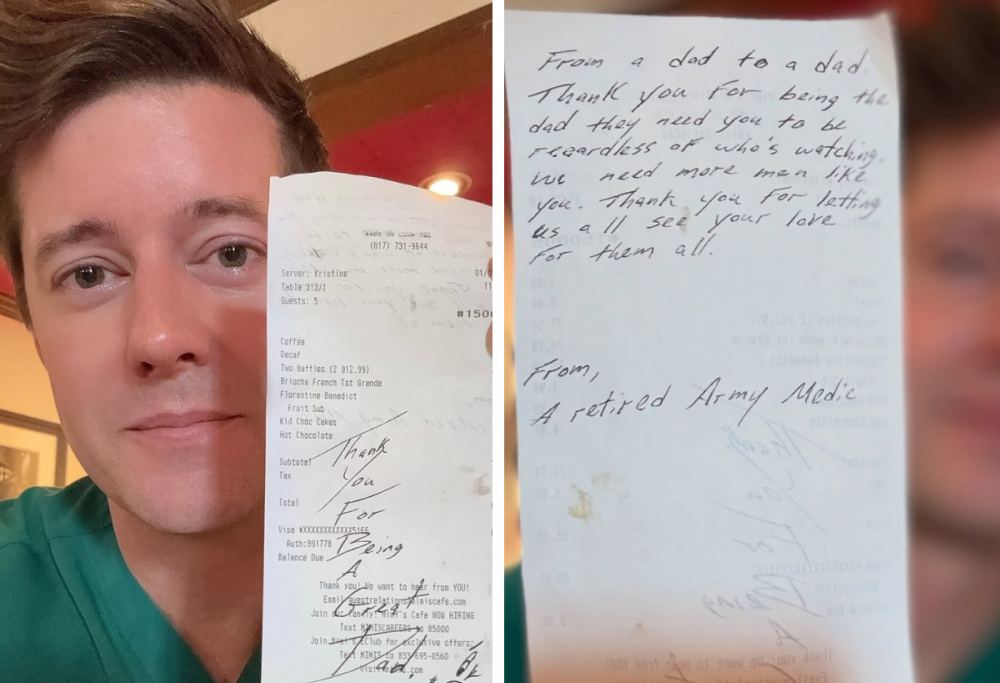 (817) 731-9644
Server: Kristine
01/0
Table 313/1
11
Guests: 5
#150
Coffee
Decaf
Two Waffles (2 @12.99)
Brioche French Tst Grande
Florentine Benedict
Fruit Sub
Kid Choc Cakes
Hot Chocolate
Thank
Subtotal
Tax
You
Total
For
Visa #XXXXXXXXXXXX5166
Auth:891778
Being
Balance Due
A
Thank you! We want to hear from YOU!
Email guestrelations@mimiscafe.com
Great
Join our family: Mimi's Cafe NOW HIRING
Text MIMISCAREERS to 85000
Join Mimi's EClub for exclusive offers:
Dad.
Text MIMIS to 833-695-0560
From a dad to a dad.
Thank you For being the
dad they need you to be
regardless of who's watching.
we need more men like
you. Thank you For letting
us all see your love
For them all.
From,
A retired Army Medic